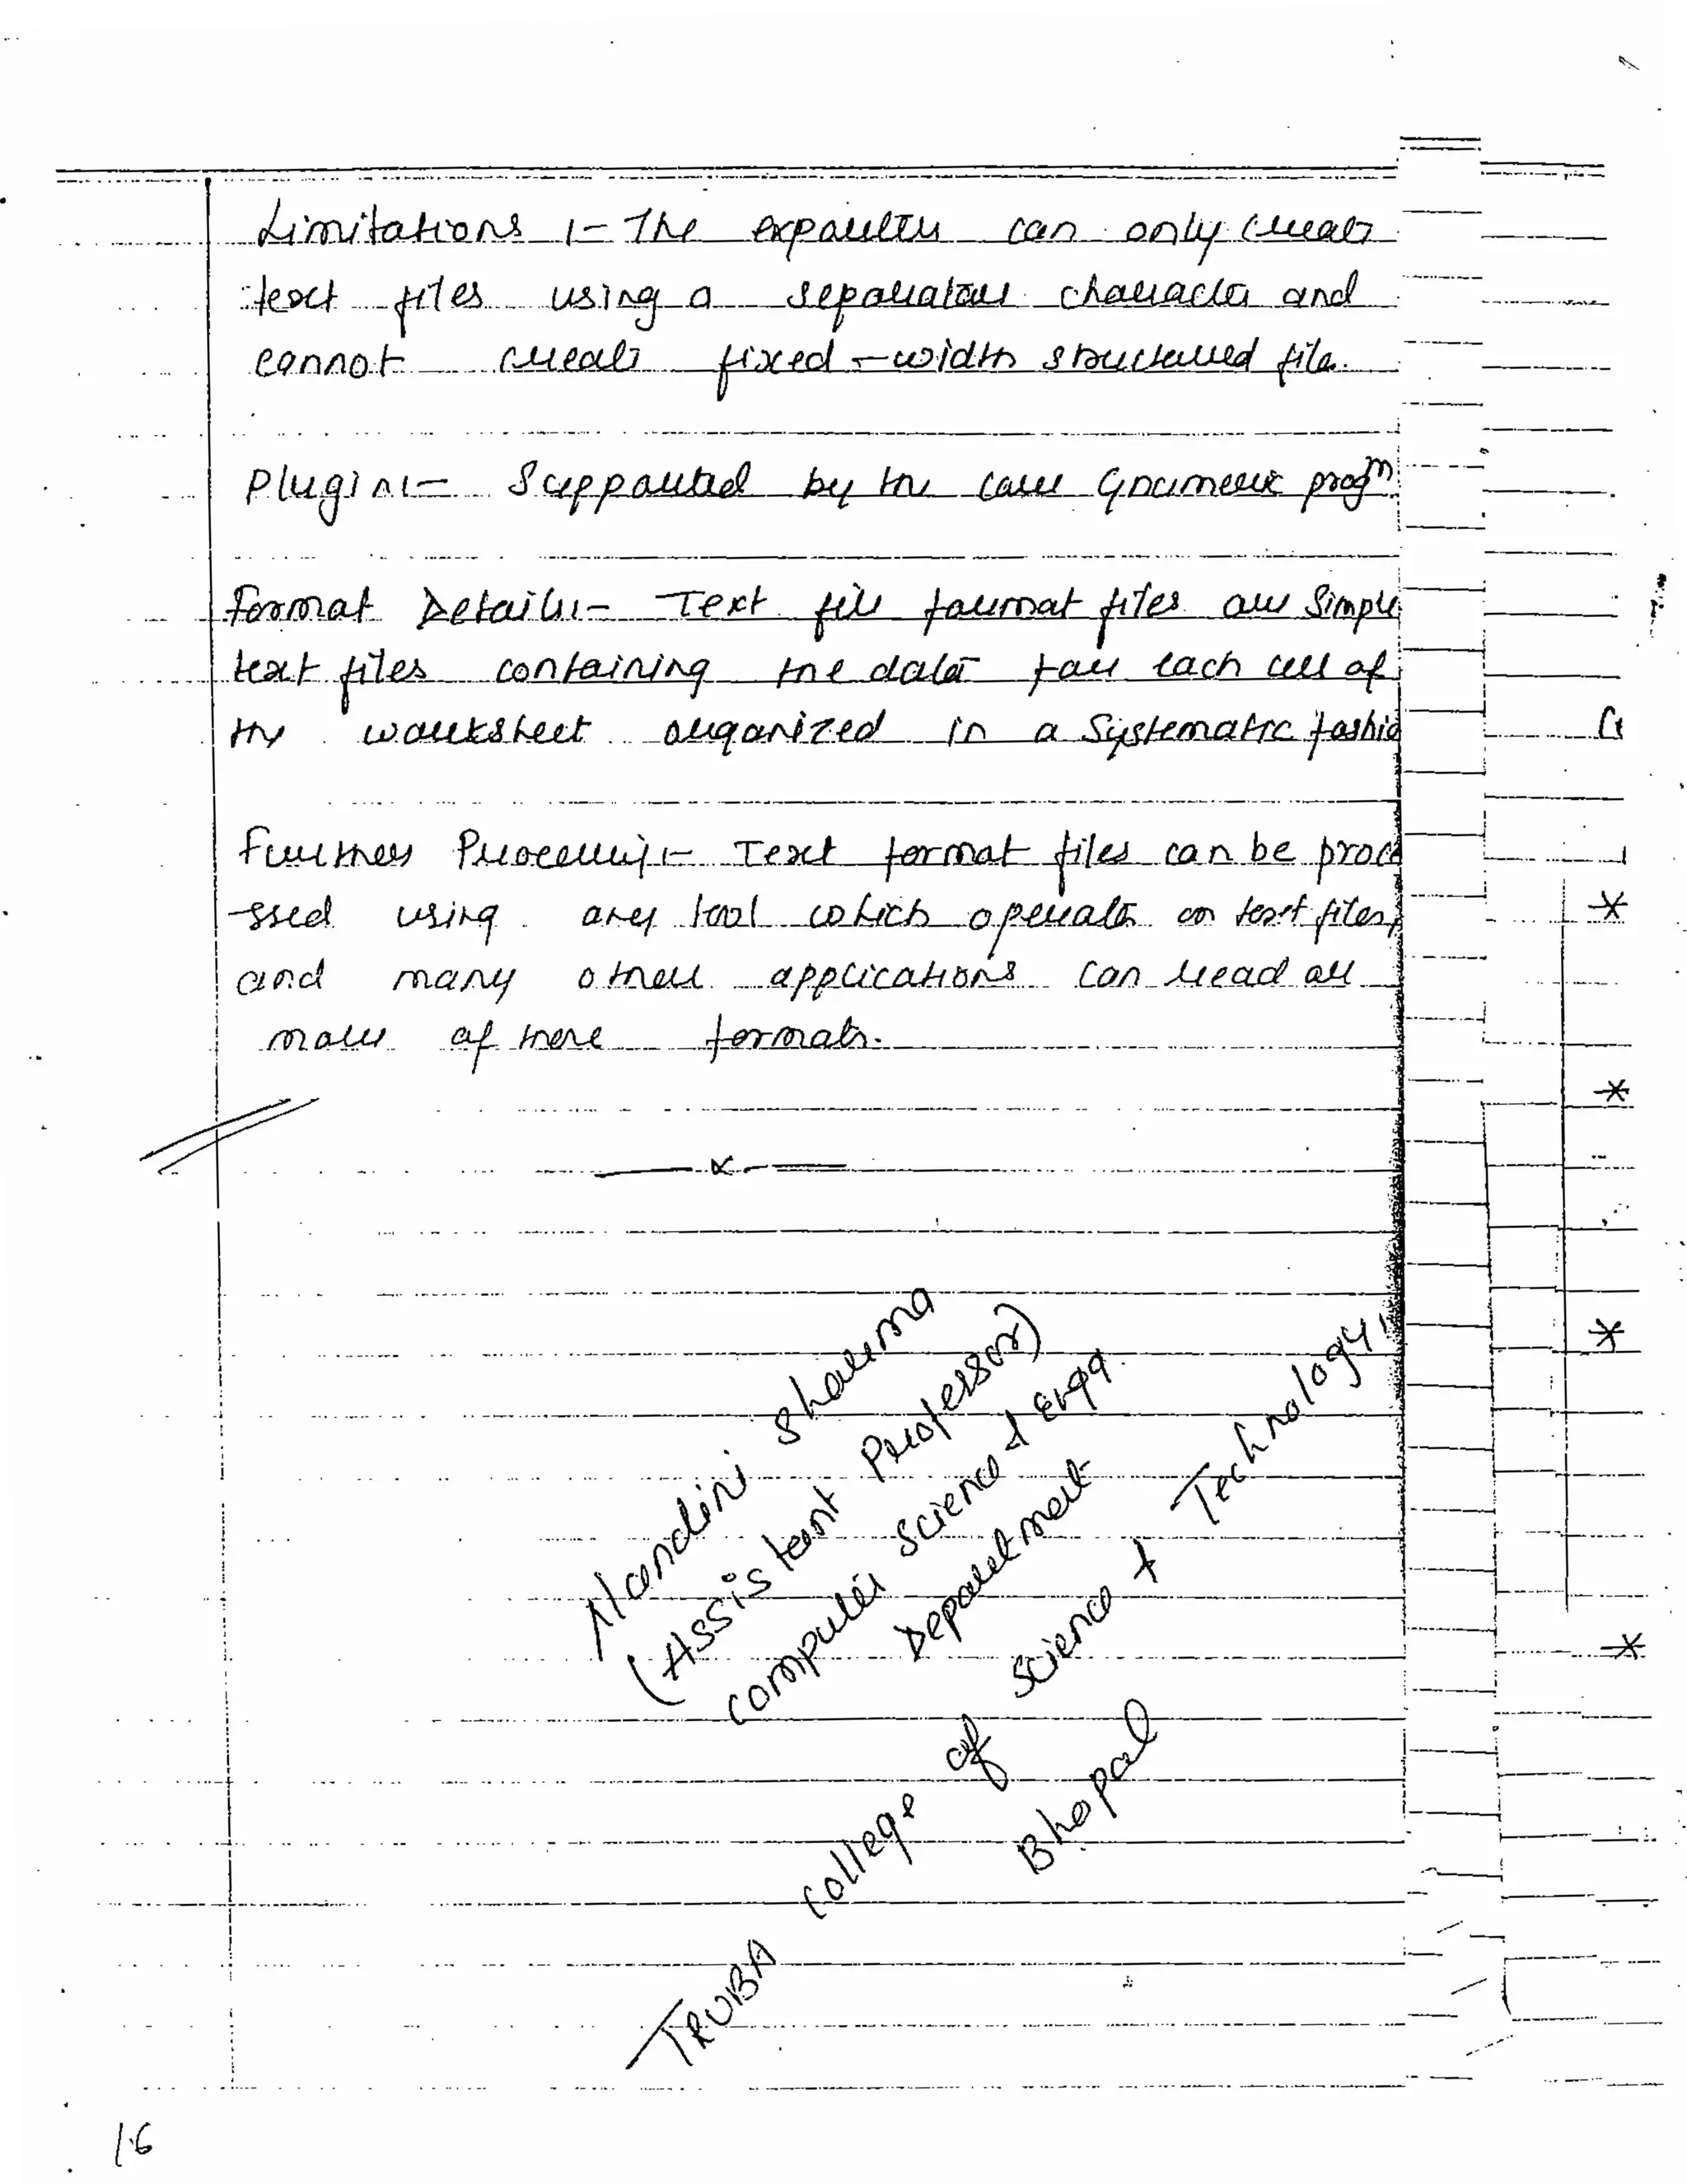 Limitations :- The exporter can only create
text files using a separator character and
cannot create fixed-width structured file.
Plugin:- Supported by the core Gnumeric progm
Format Details:- Text file format files are simple
text files containing the data for each cell of
the worksheet organized in a systematic fashio
Further Processing:- Text format files can be proce
-ssed using any tool which operates on text files,
and many other applications can read all
more of these formats.
Nandini Sharma
(Assistant Professor)
Computer Science & Engg.
Department
TRUBA College of Science & Technology,
Bhopal
16